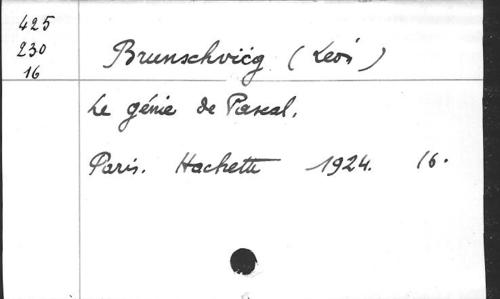 425
230
16
Brunschvicg (Léon)
Le génie de Pascal.
Paris. Hachette 1924. 16.